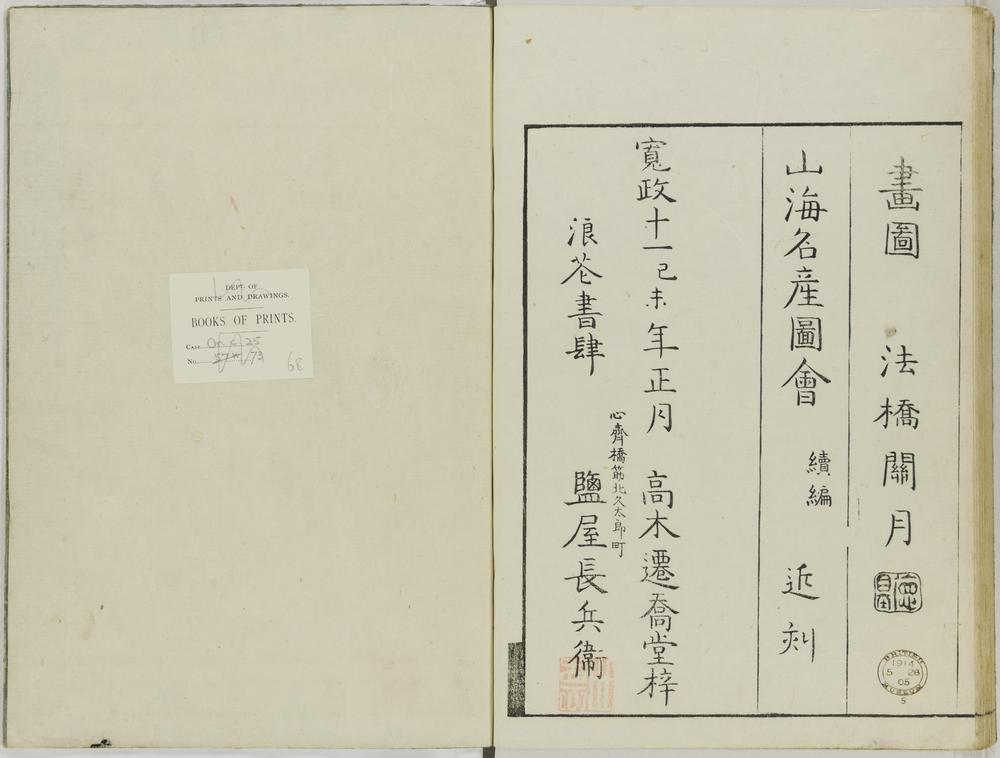 畫圖 法橋關月
山海名産圖會 續編 近刻
寬政十一己未年正月 高木遷喬堂梓
心齊橋筋北久太郎町
浪花書肆 鹽屋長兵衞
BRITISH MUSEUM
1914
5 28
05
5
DEPT. OF
PRINTS AND DRAWINGS.
BOOKS OF PRINTS.
CASE Or. c. 25
No. 73
68